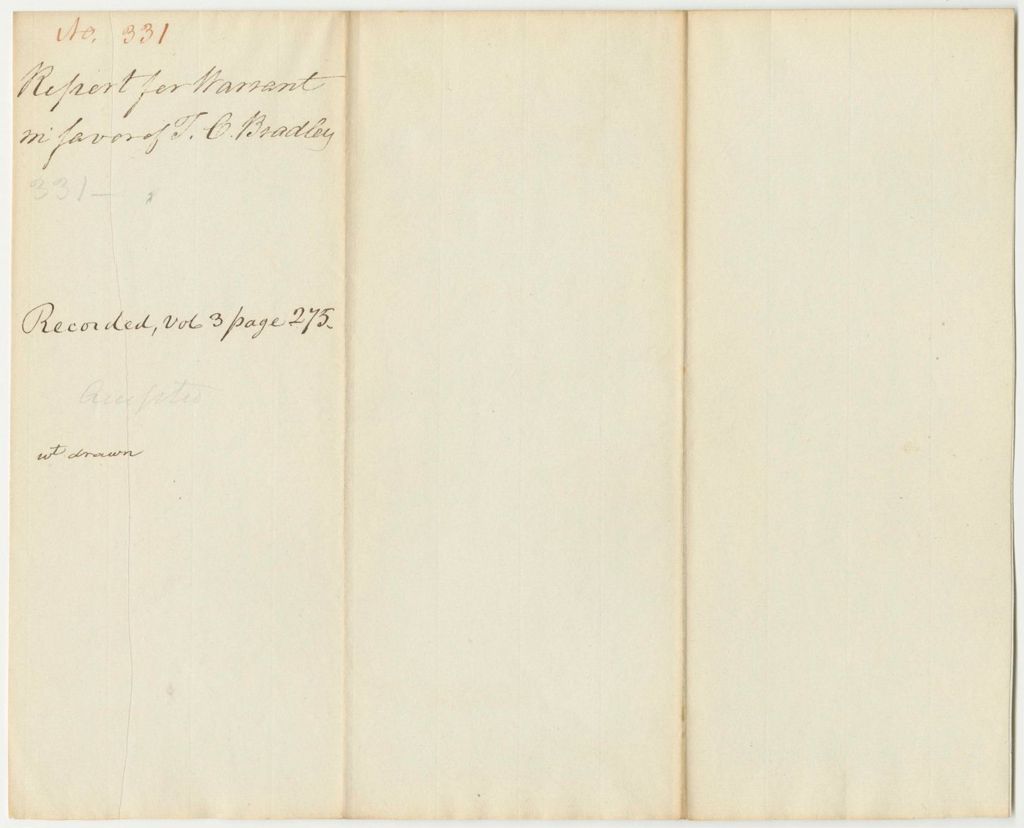 No. 331
Report for Warrant
in favor of T. C. Bradley
331—
Recorded, vol 3 page 275.
Accepted
wt drawn